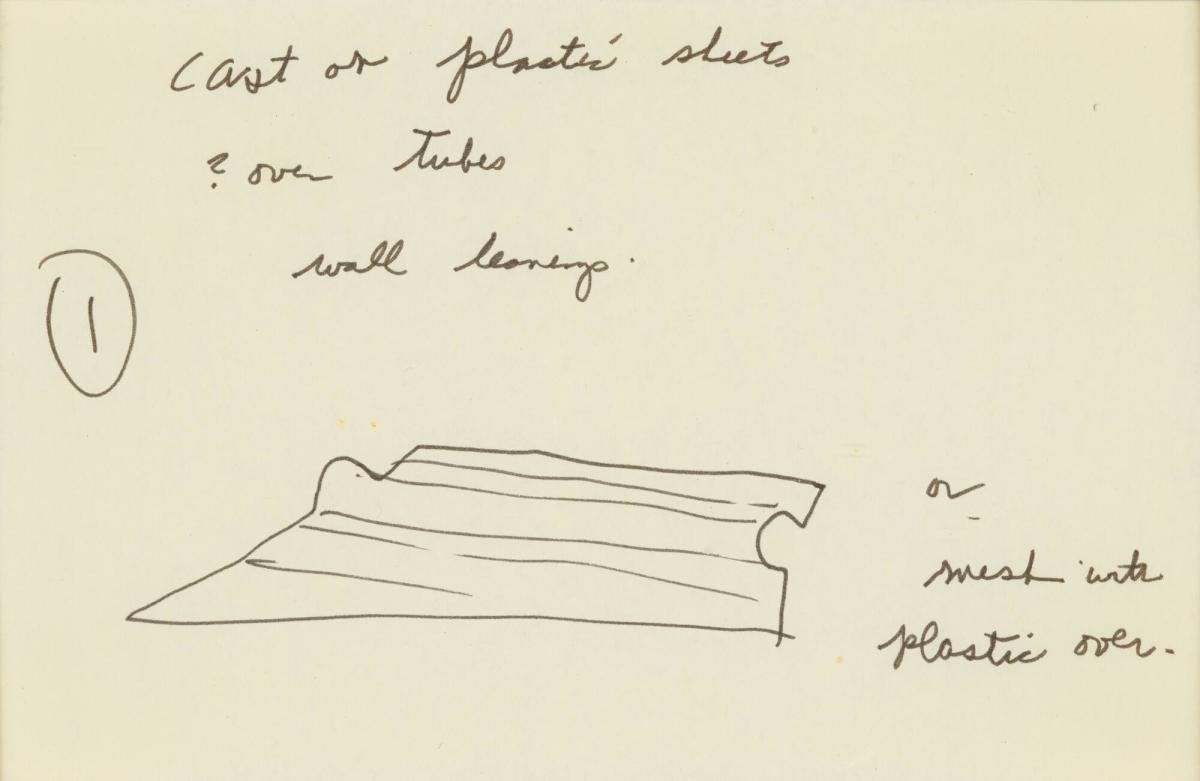 Cast or plastic sheets
? over tubes
wall leanings.
1
or
mesh with
plastic over.